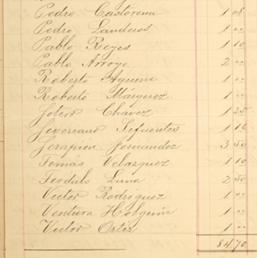 Pedro Castorena 1 08
Pedro Landeros 1 00
Pablo Reyes 1 10
Pablo Arroyo 2 00
Roberto Aguirre 1 00
Roberto Márquez 1 00
Sotero Chávez 1 25
Severiano Sifuentes 1 16
Serapion Hernandez 3
Tomás Velazquez 1 10
Teodulo Luna 2 50
Victor Rodriguez 1 00
Ventura Holguin 1 00
Victor Ortiz 1 00
84.70